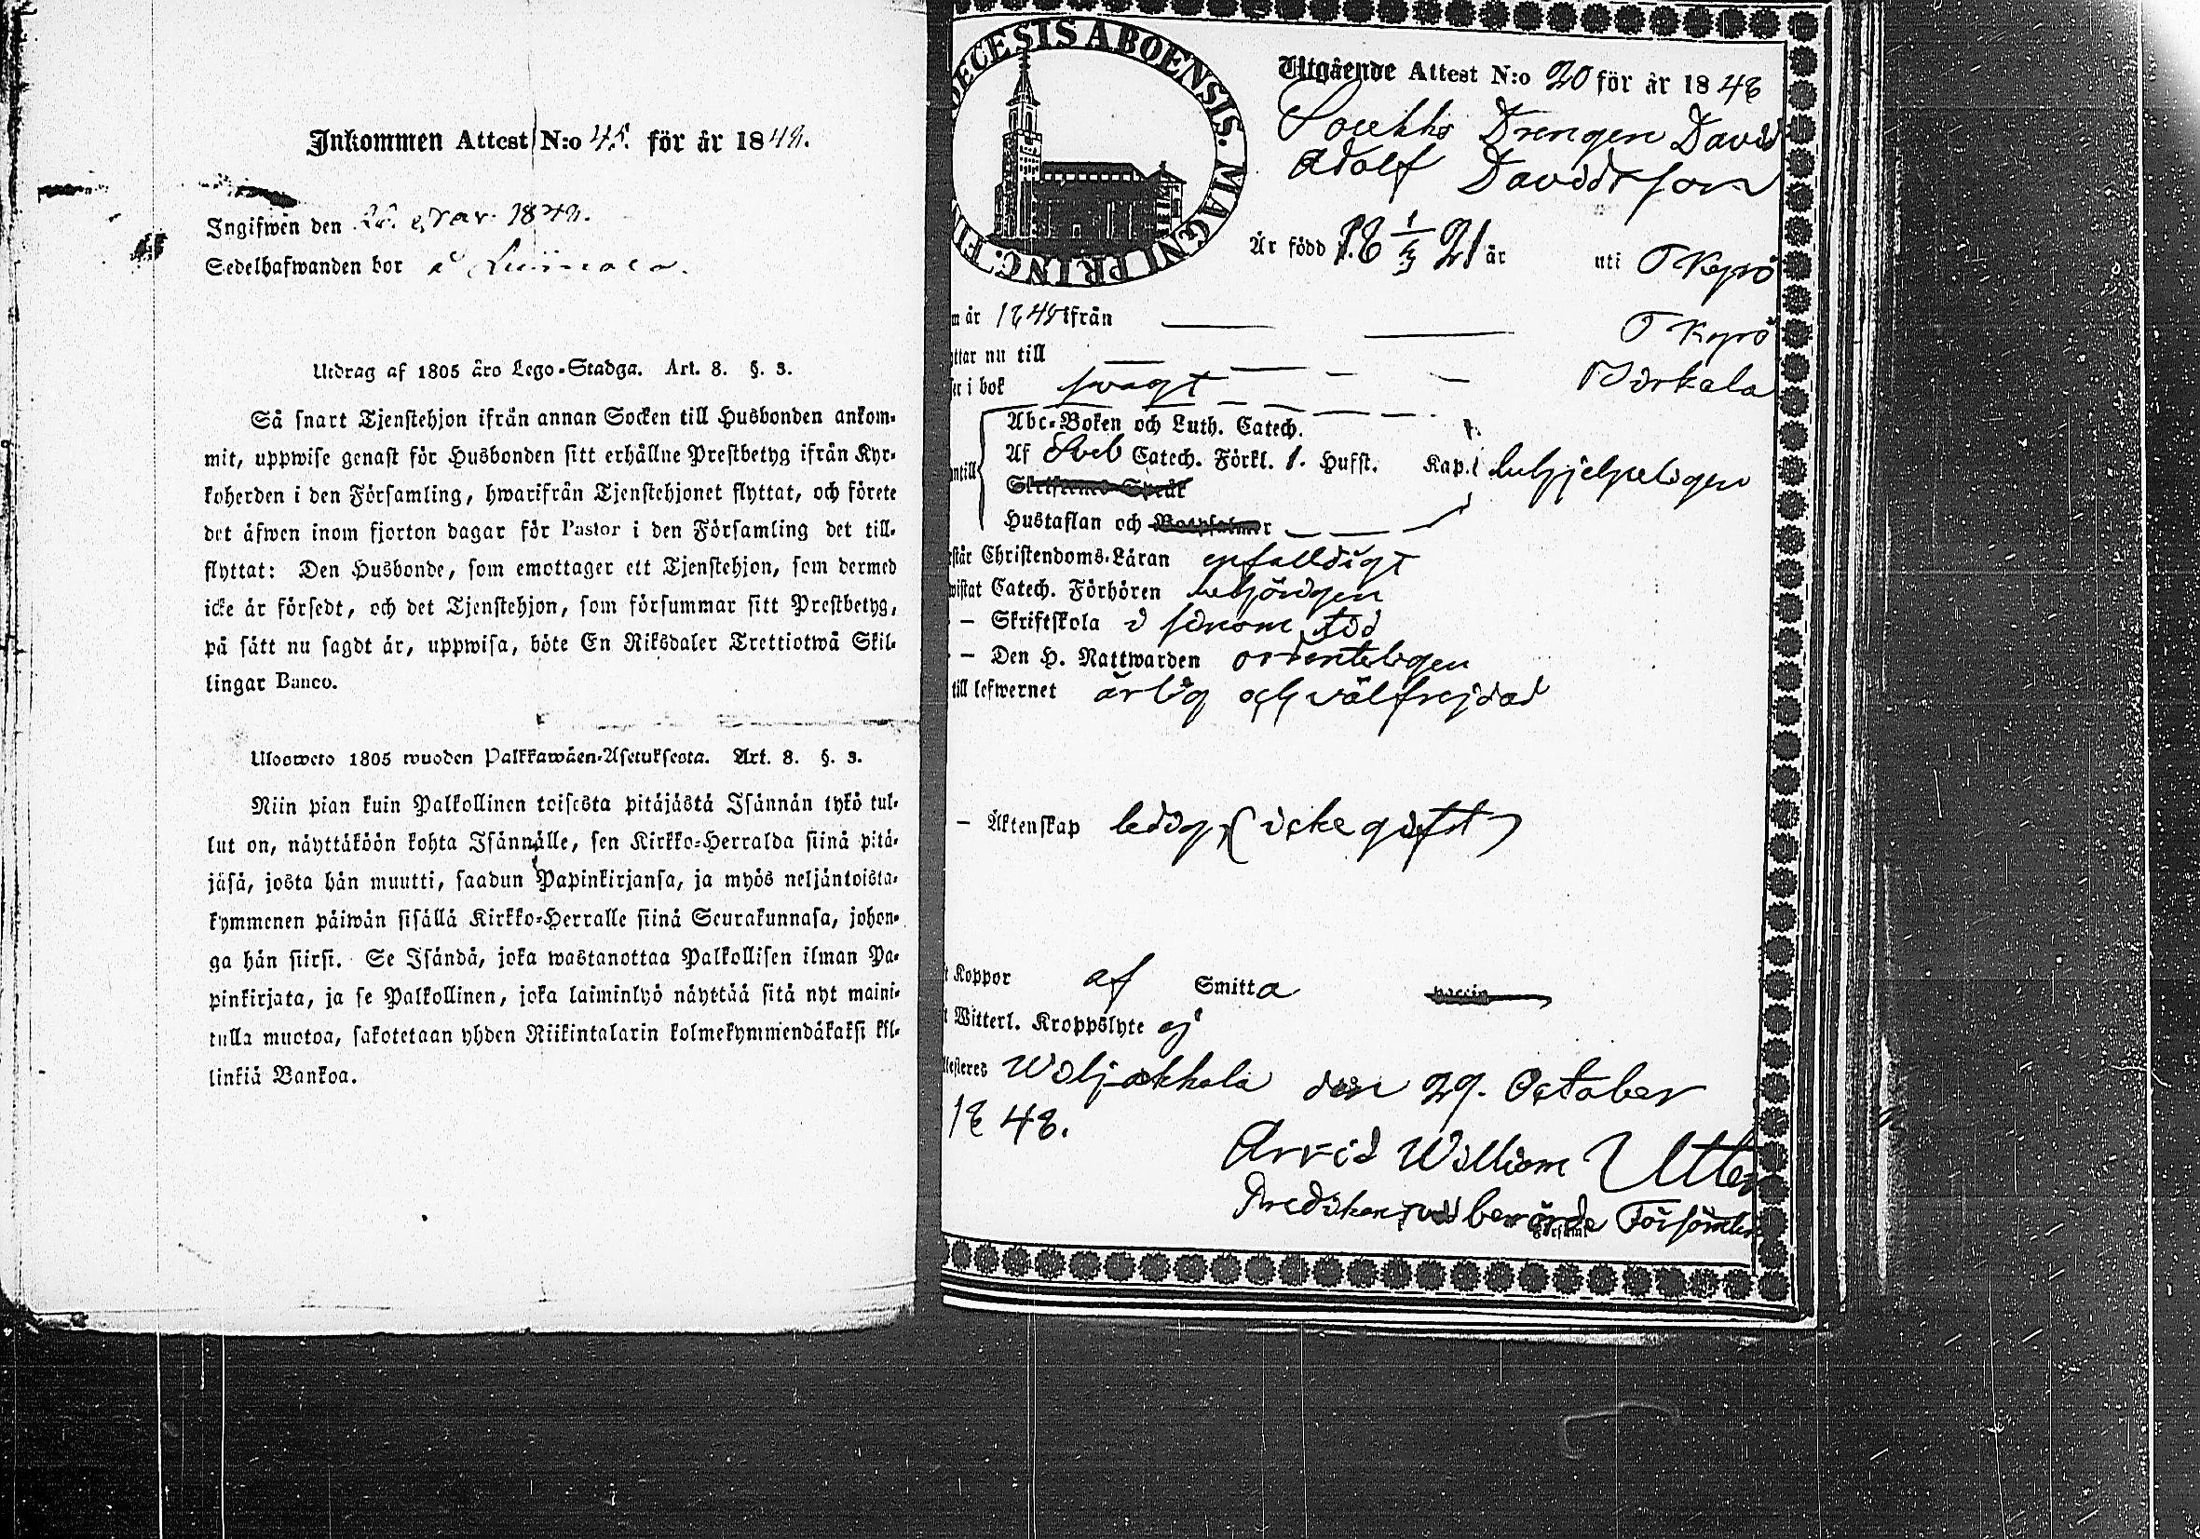 Inkommen Attest N:o 45. för år 1848.
Ingifwen den 1848.
Sedelhafwanden bor i
Utdrag af 1805 års Lego-Stadga. Art. 8. §. 3.
Så snart Tjenstehjon ifrån annan Socken till Husbonden ankom-
mit, uppwise genast för Husbonden sitt erhållne Prestbetyg ifrån Kyr-
koherden i den Församling, hwarifrån Tjenstehjonet flyttat, och förete
det äfwen inom fjorton dagar för Pastor i den Församling det till-
flyttat: Den Husbonde, som emottager ett Tjenstehjon, som dermed
icke är försedt, och det Tjenstehjon, som försummar sitt Prestbetyg,
på sätt nu sagdt är, uppwisa, böte En Riksdaler Trettiotwå Skil-
lingar Banco.
Ulosweto 1805 wuoden Palkkawäen-Asetuksesta. Art. 8. §. 3.
Niin pian kuin Palkollinen toisesta pitäjästä Isännän tykö tul-
lut on, näyttäköön kohta Isännälle, sen Kirkko-Herralda siinä pitä-
jäsä, josta hän muutti, saadun Papinkirjansa, ja myös neljäntoista-
kymmenen päiwän sisällä Kirkko-Herralle siinä Seurakunnasa, johon-
ga hän siirsi. Se Isändä, joka wastanottaa Palkollisen ilman Pa-
pinkirjata, ja se Palkollinen, joka laiminlyö näyttää sitä nyt maini-
tulla muotoa, sakotetaan yhden Riikintalarin kolmekymmendäkaksi kil-
linkiä Bankoa.
DECESIS ABOENSIS. MAGNI PRINC. FIN
Utgående Attest N:o 20 för år 1848
Drengen David
Adolf Davidsson
Är född 18 1/3 21 år uti T Kyrö
m år 1848 ifrån T Kyrö
ttar nu till Birkala
er i bok svagt
Abc-Boken och Luth. Catech.
Af Sveb Catech. Förkl. 1. Hufst. Kap. behjelpeligen
antill
Skriftenes Språk
Hustaflan och Botpsalmer
står Christendoms-Läran enfalldigt
wistat Catech. Förhören behörigen
– Skriftskola i sinom tid
– Den H. Nattwarden ordenteligen
till lefwernet ärlig och välfrejdad
– Äktenskap ledig (icke gift)
t Koppor af Smitta vaccin
t Witterl. Kroppslyte ej
ttesteras Wiljakkala den 29. October
1848.
Arvid William
Predikant vid berörde